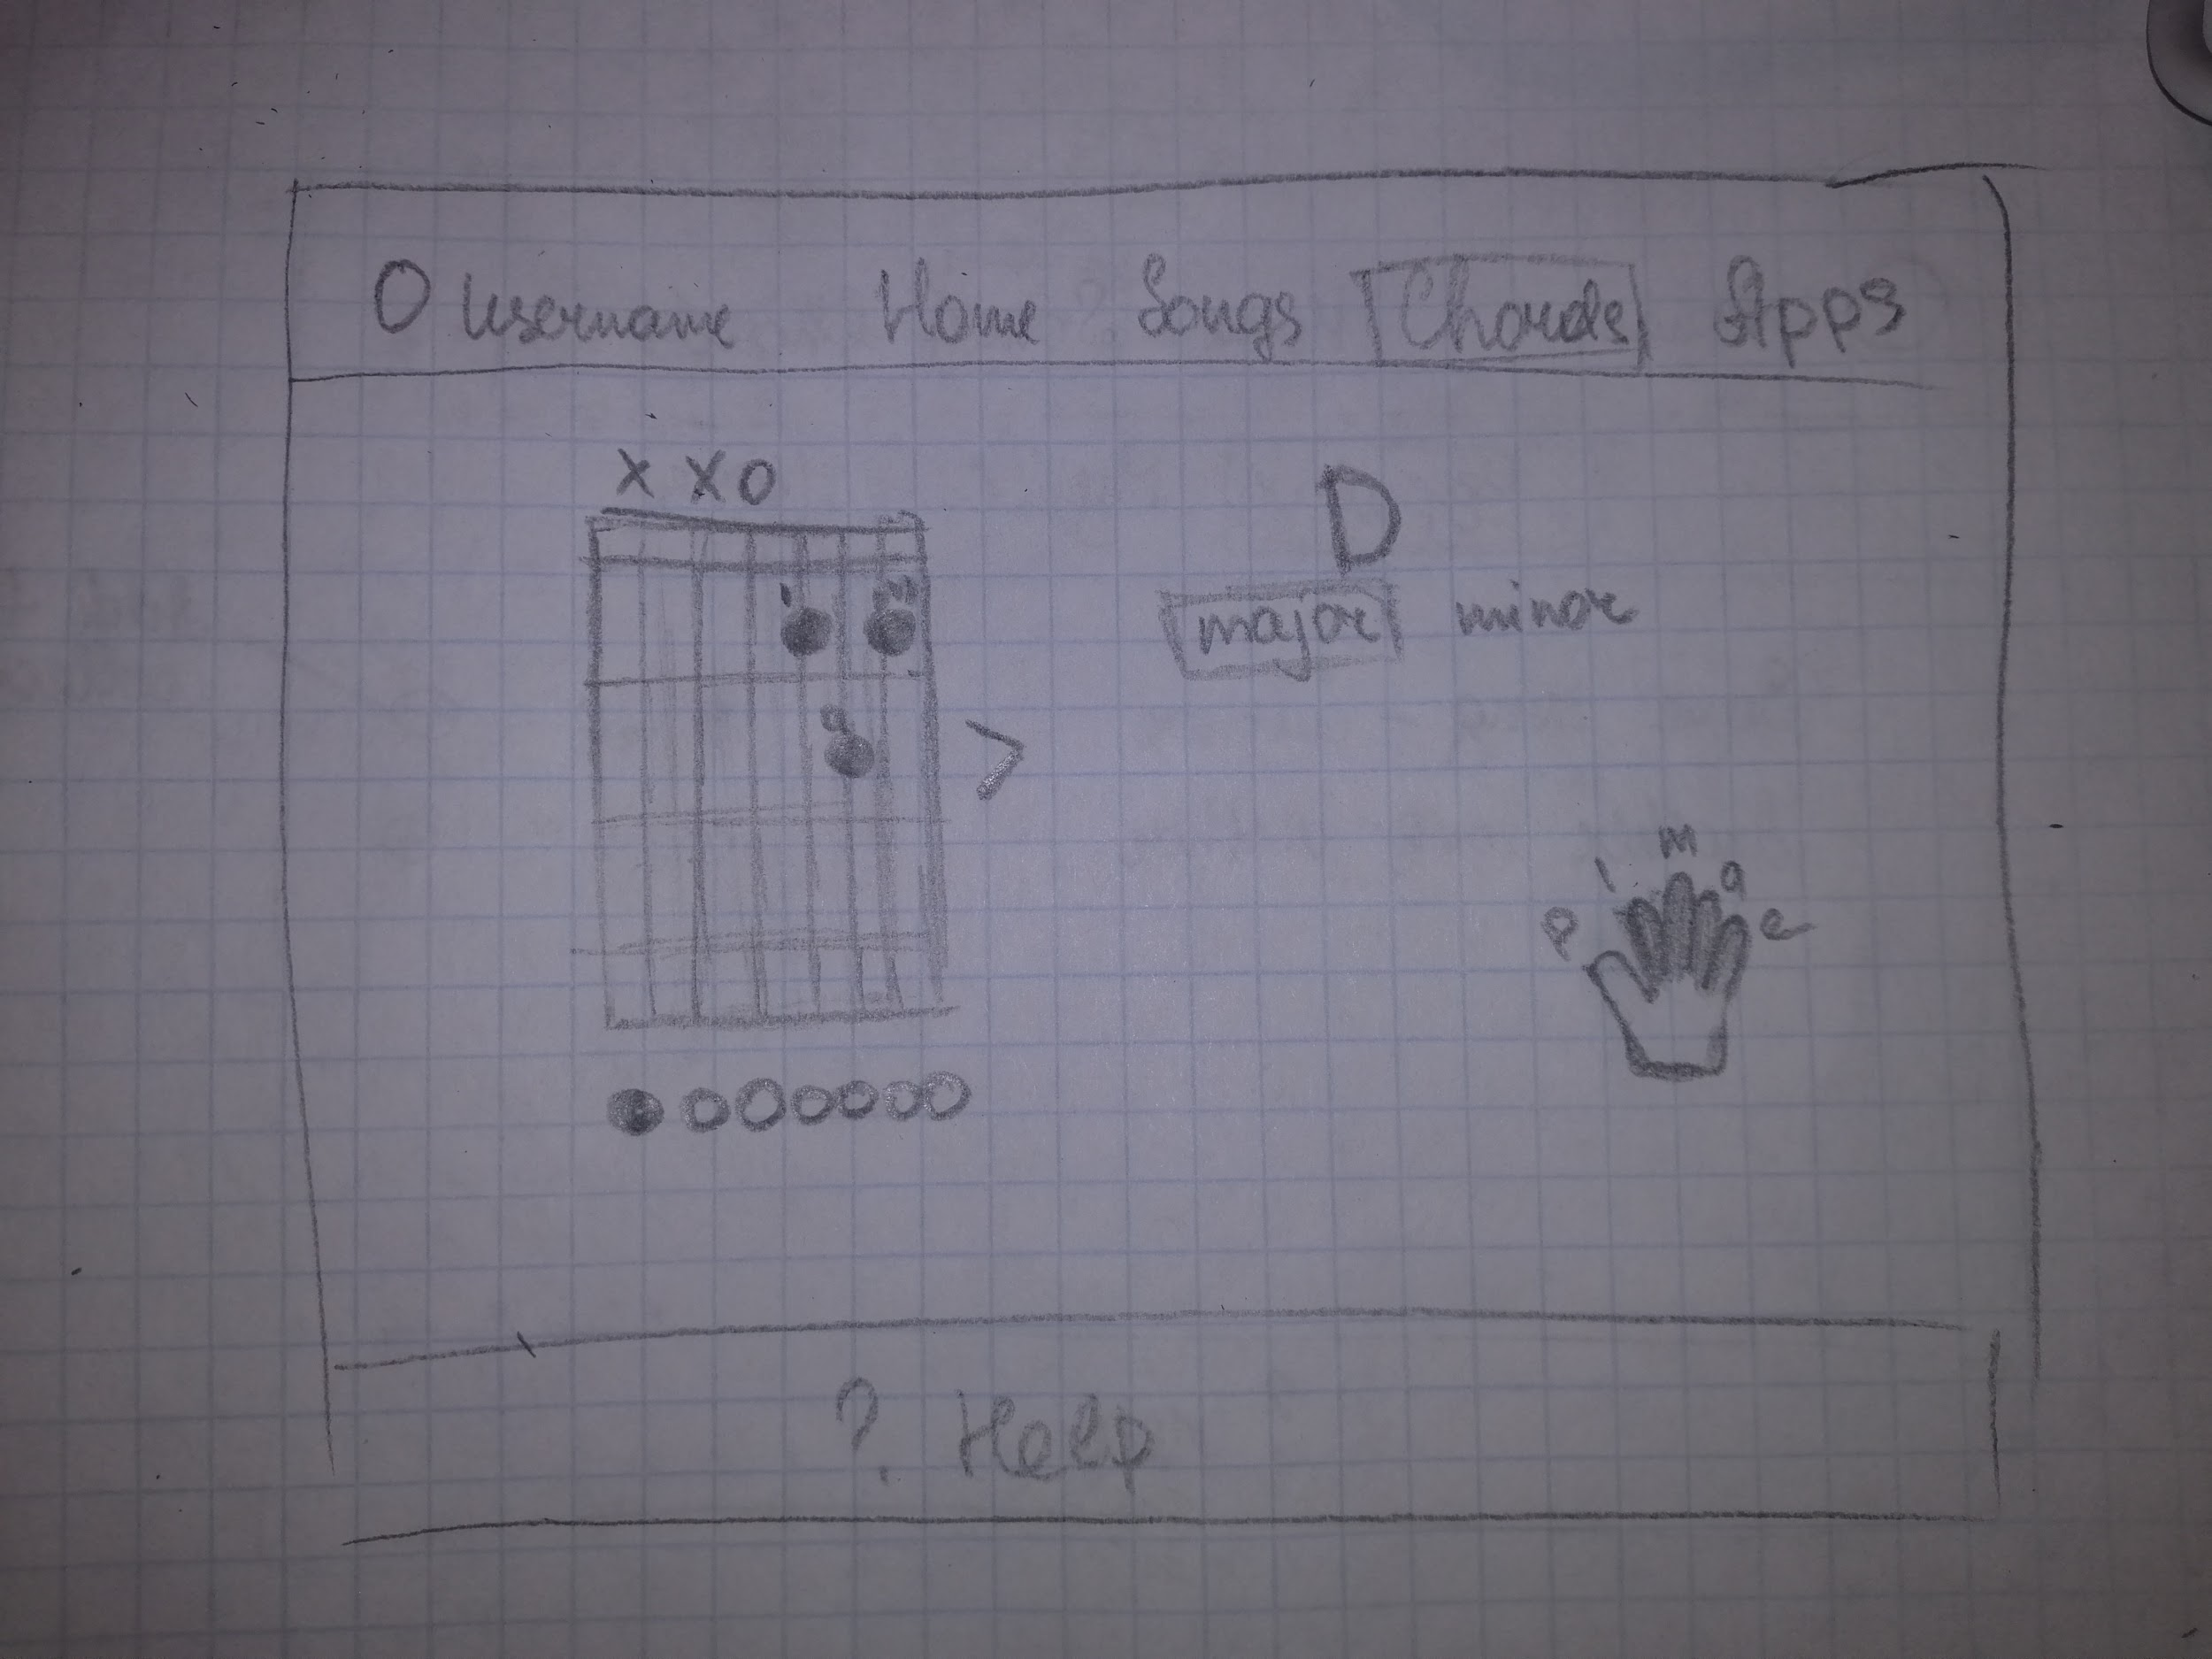 O Username Home Songs Chords Apps
X X O
D
major minor
i m
a
>
m
i a
p e
? Help